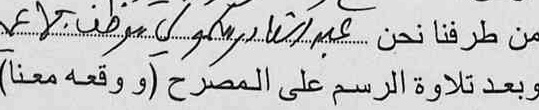 من طرفنا نحن عبد القادر
وبعد تلاوة الرسم على المصرح (و وقعه معنا)